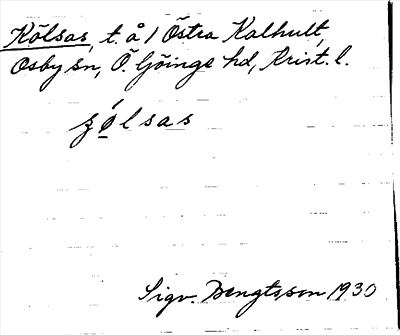 Kölsas, t. å 1 Östra Kalhult,
Osby sn, Ö. Göinge hd, Krist. l.
ʒ ǿ l s a s
Sigv. Bengtsson 1930